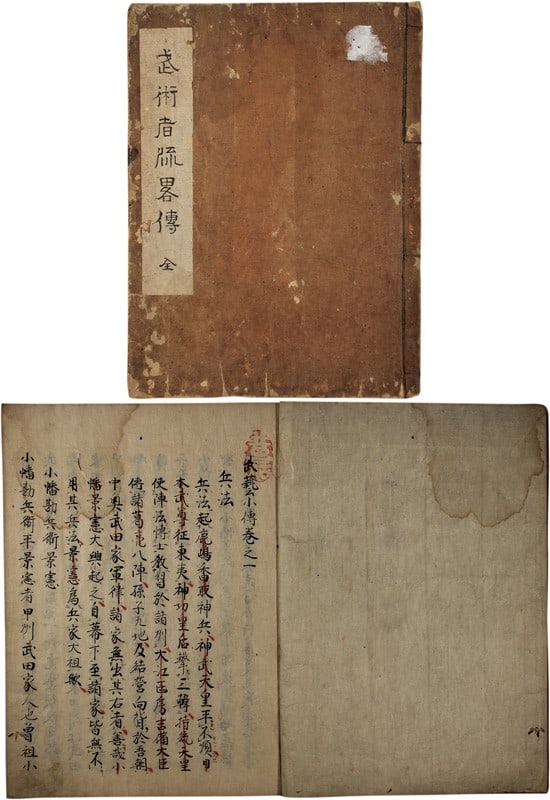 武術者流畧傳 全
武藝小傳巻之一
兵法
兵法起鹿嶋香取神兵神武天皇平不順日
本武尊征東夷神功皇后撃三韓持統天皇
使陣法博士教習於諸州大江匡房吉備大臣
傳諸葛亮八陣孫子九地及結營向背於吾朝
中興武田家軍律諸家無出其右者善哉小
幡景憲大興起之自幕下至諸家皆無不
用其兵法景憲爲兵家大祖歟
小幡勘兵衛景憲
小幡勘兵衛平景憲者甲州武田家人也曽祖小